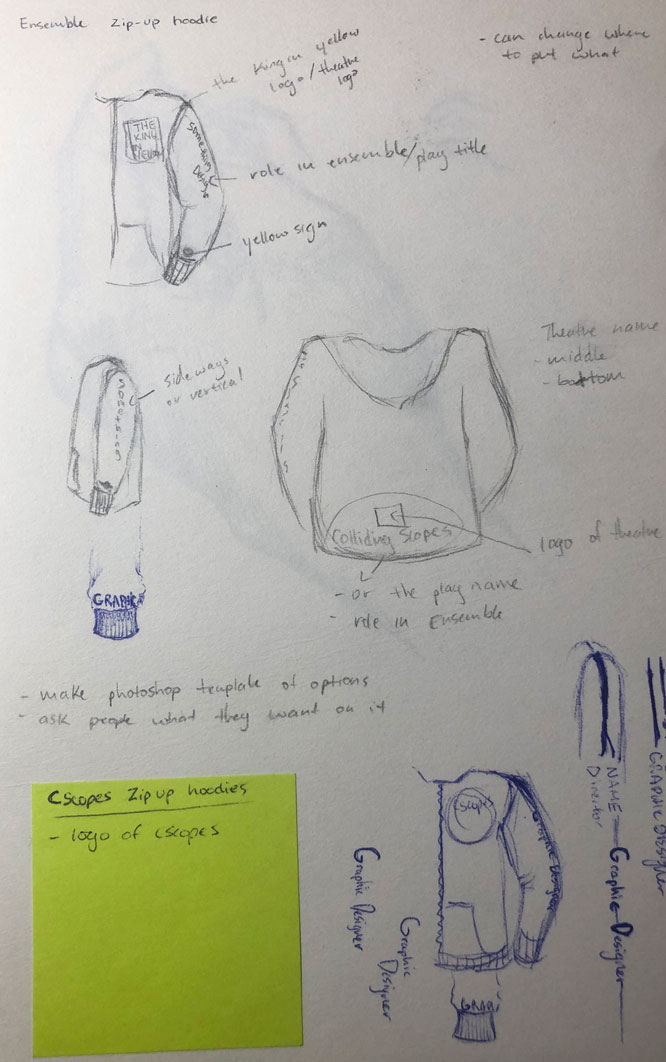 Ensemble Zip-up hoodie
- can change where
to put what
the King in yellow
logo/theatre
logo
THE
KING
IN
YELLOW
role in ensemble/play title
yellow sign
sideways
or vertical
Theatre name
- middle
- bottom
Colliding Scopes
logo of theatre
- or the play name
- role in Ensemble
GRAPHIC
- make photoshop template of options
- ask people what they want on it
Cscopes Zip up hoodies
- logo of cscopes
Cscopes
Graphic Designer
GRAP
Graphic Designer
Graphic
Designer
NAME
Director
Graphic Designer
GRAPHIC DESIGNER